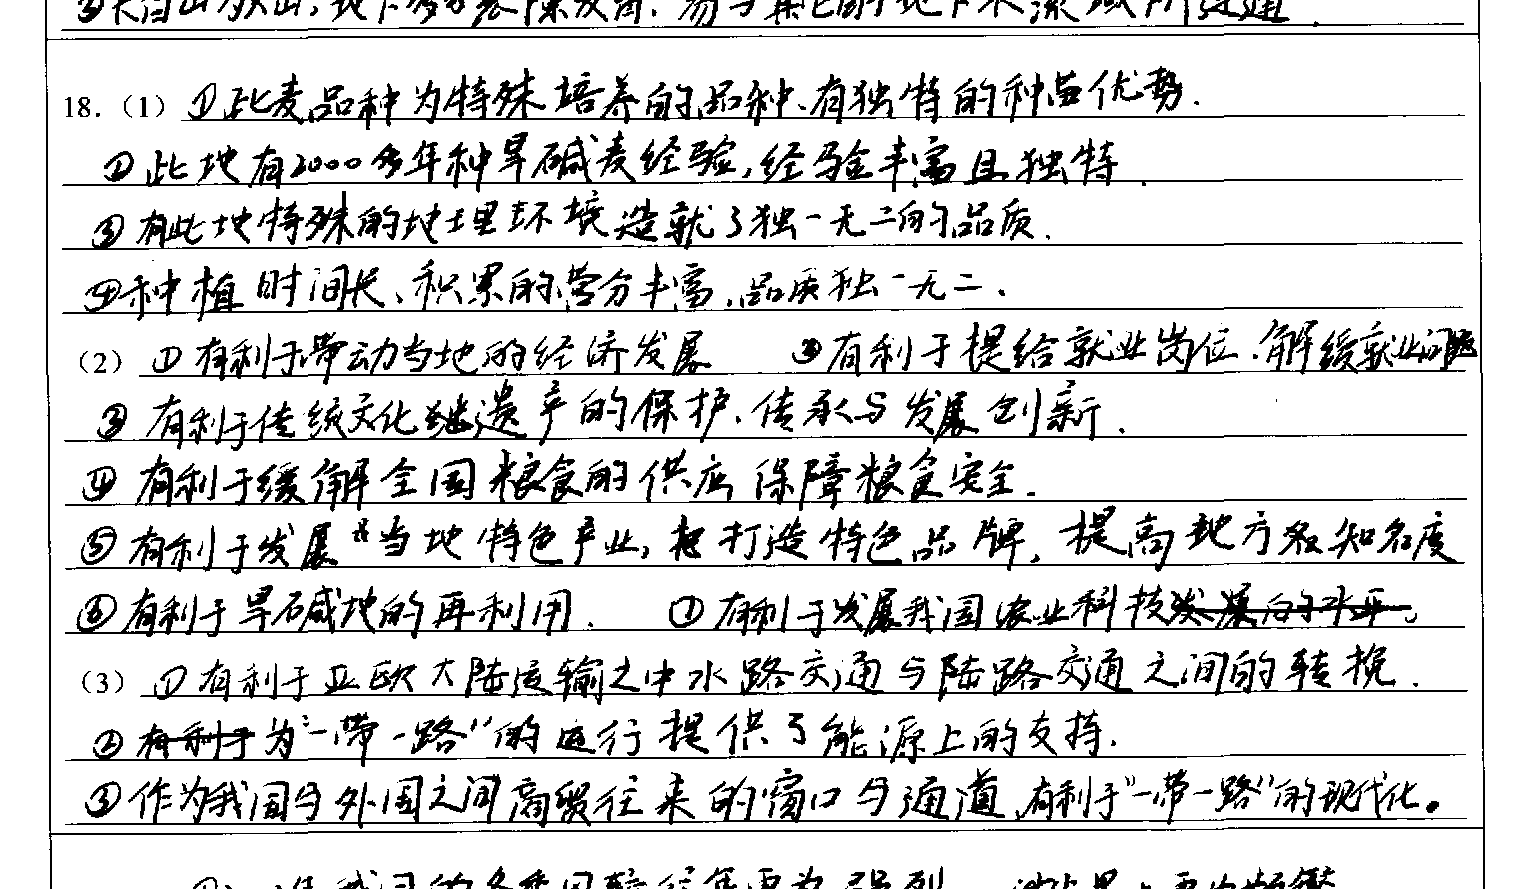 18.（1）①此麦品种为特殊培养的品种、有独特的种苗优势.
②此地有2000多年种旱碱麦经验,经验丰富且独特.
③有此地特殊的地理环境造就了独一无二的品质.
④种植时间长、积累的营分丰富,品质独一无二.
（2）①有利于带动当地的经济发展 ②有利于提给就业岗位.解缓就业问题
③有利于传统文化遗产的保护.传承与发展创新.
④有利于缓解全国粮食的供应 保障粮食安全.
⑤有利于发展当地特色产业,打造特色品牌,提高地方名知名度
⑥有利于旱碱地的再利用. ⑦有利于发展我国农业科技发展的水平。
（3）①有利于亚欧大陆运输之中水路交通与陆路交通之间的转换.
②有利于为"一带一路"的运行提供了能源上的支持.
③作为我国与外国之间商贸往来的窗口与通道,有利于"一带一路"的现代化。